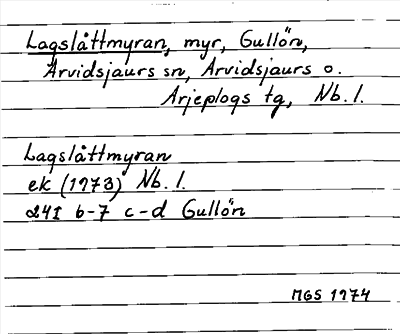 Lagslåttmyran, myr, Gullön,
Arvidsjaurs sn, Arvidsjaurs o.
Arjeplogs tg, Nb. l.
Lagslåttmyran
ek (1973) Nb. l.
24I 6-7 c-d Gullön
MGS 1974